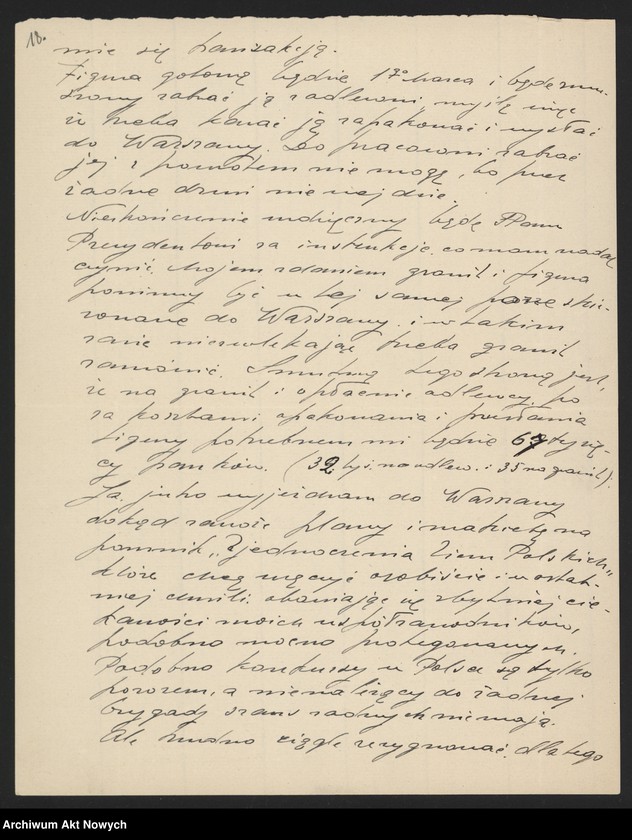 18.
mie się tranzakcją.
Figura gotową będzie 1go Marca i będę zmu-
szony zabrać ją z odlewni, myślę więc
że trzeba kazać ją zapakować i wysłać
do Warszawy. Do pracowni zabrać
jej z powrotem nie mogę, bo przez
żadne drzwi nie wejdzie.
Nieskończenie wdzięczny będę Panu
Prezydentowi za instrukcje, co mam nadal
czynić. Mojem zdaniem granit i figura
powinny być w tej samej porze skie-
rowane do Warszawy, i w takim
razie niezwlekając trzeba granit
zamówić. Smutną tego stroną jest,
że na granit i opłacenie odlewcy, po
za kosztami opakowania i przesłania
figury potrzebnem mi będzie 67 tysię-
cy franków. (32 tyś. na odlew. i 35 na granit).
Ja jutro wyjeżdżam do Warszawy
dokąd zawożę plany i makietę na
pomnik „Zjednoczenia Ziem Polskich",
które chcę wręczyć osobiście i w ostat-
niej chwili, obawiając się zbytniej cie-
kawości moich współzawodników,
podobno mocno protegowanych.
Podobno konkursy w Polsce są tylko
pozorem, a nienależący do żadnej
brygady szans żadnych nie mają.
Ale trudno ciągle rezygnować, dlatego
Archiwum Akt Nowych